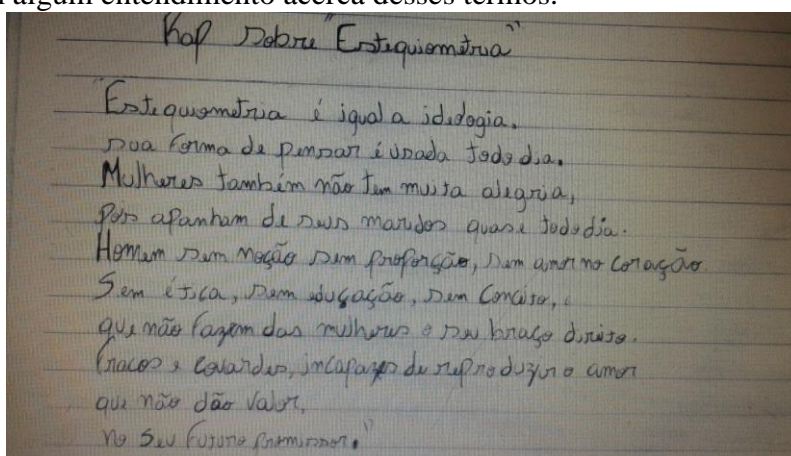 algum entendimento acerca desses termos.
Rap Sobre "Estequiometria"
"Estequiometria é igual a ideologia,
sua forma de pensar é usada todo dia.
Mulheres também não tem muita alegria,
pois apanham de seus maridos quase todo dia.
Homem sem noção sem proporção, sem amor no coração.
Sem ética, sem educação, sem Conceito,
que não fazem das mulheres o seu braço direito.
fracos e covardes, incapazes de reproduzir o amor
que não dão valor,
no seu futuro promissor."